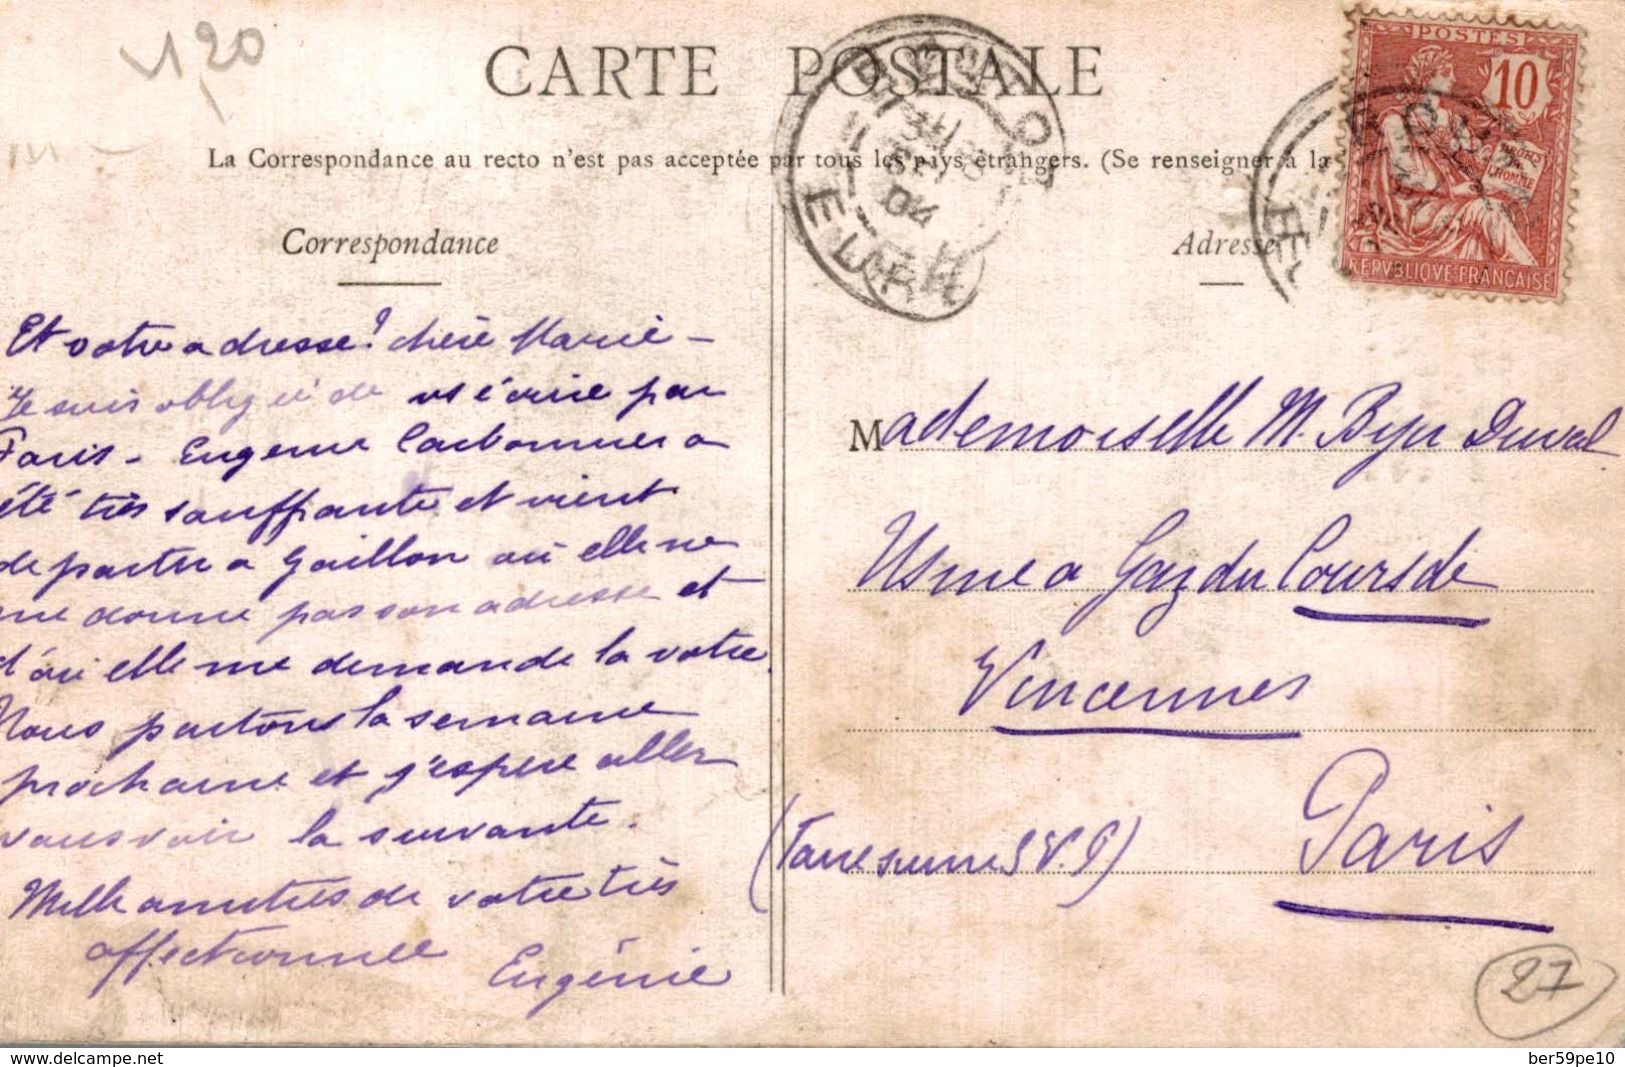 1,20
CARTE POSTALE
La Correspondance au recto n'est pas acceptée par tous les pays étrangers. (Se renseigner à la
Correspondance
Et votre adresse? chère Marie -
Je suis obligée de vs écrire par
Paris - Eugénie Carbonnier a
été très souffrante et vient
de partir à Gaillon où elle ne
me donne pas son adresse et
d'où elle me demande la votre.
Nous partons la semaine
prochaine et j'espère aller
vous voir la suivante.
Mille amitiés de votre très
affectionnée
Eugénie
POSTES
10
DROITS
DE
L'HOMME
REPVBLIQVE FRANÇAISE
04
EURE
Adresse
Mademoiselle M. Duval
Usine a Gaz du Cours de
Vincennes
Paris
(Faire suivre S.V.P)
27
www.delcampe.net
ber59pe10